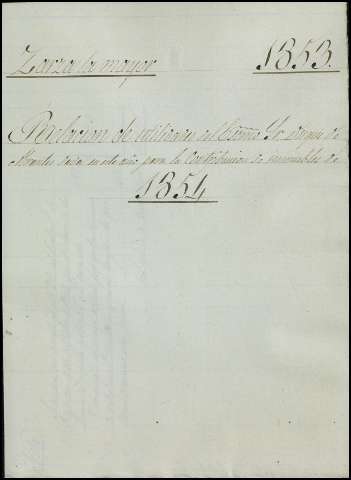 Zarza la mayor 1853.
Relacion de utilidades del Excmo Sr Duque de
Abrantes dada en este año para la Contribucion de inmuebles de
1854